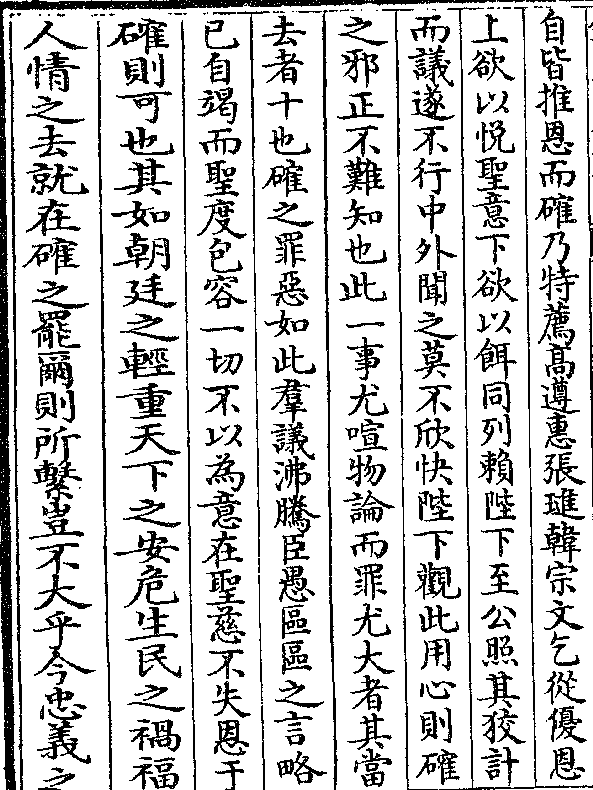 自皆推恩而確乃特薦高遵惠張璡韓宗文乞從優恩
上欲以悦聖意下欲以餌同列賴陛下至公照其狡計
而議遂不行中外聞之莫不欣快陛下觀此用心則確
之邪正不難知也此一事尤喧物論而罪尤大者其當
去者十也確之罪惡如此羣議沸騰臣愚區區之言略
已自竭而聖度包容一切不以為意在聖慈不失恩于
確則可也其如朝廷之輕重天下之安危生民之禍福
人情之去就在確之罷爾則所繫豈不大乎今忠義之